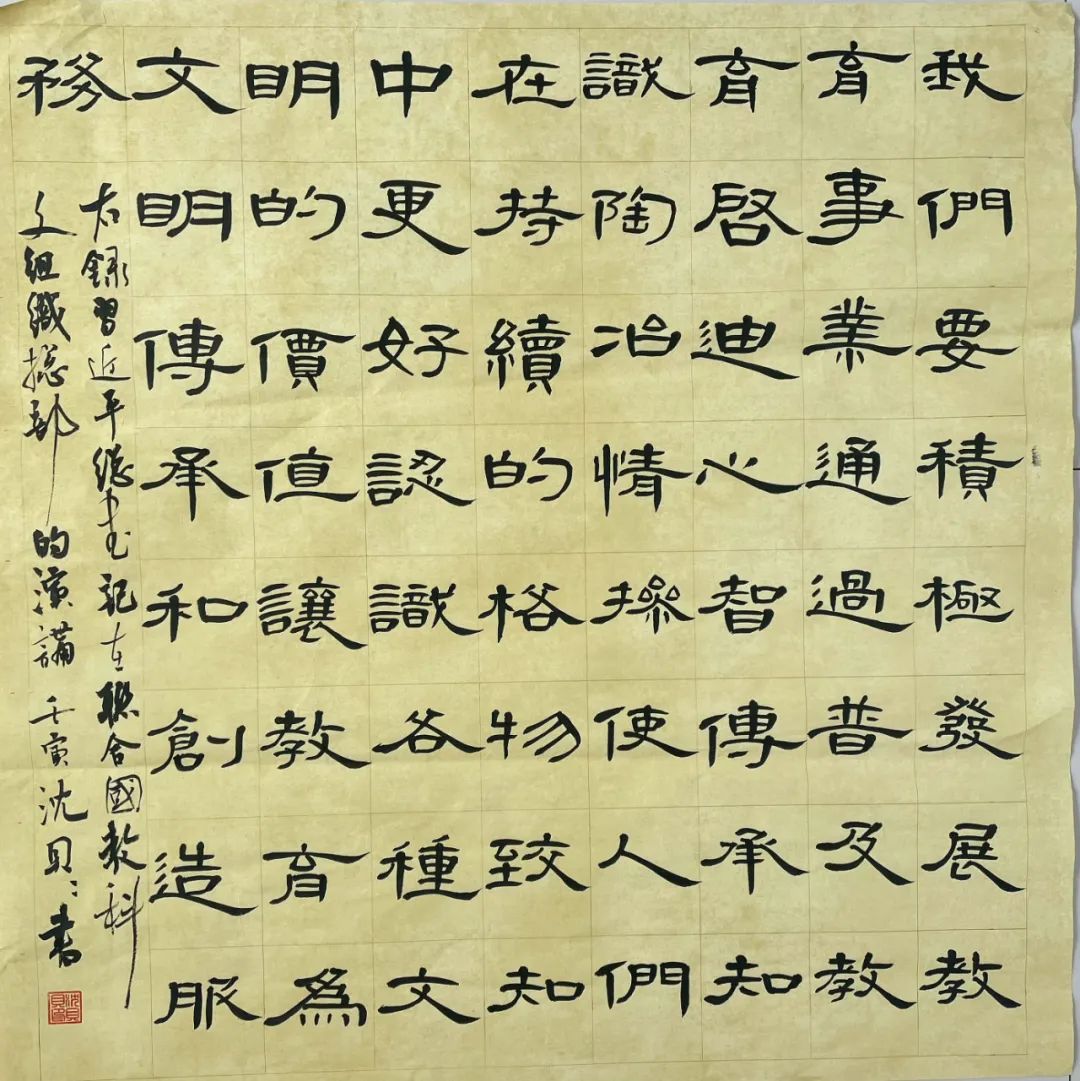 我們要積極發展教
育事業通過普及教
育啓迪心智傳承知
識陶冶情操使人們
在持續的格物致知
中更好認識各種文
明的價值讓教育為
文明傳承和創造服
務
右錄習近平總書記在聯合國教科
文組織總部的演講 壬寅沈貝貝書